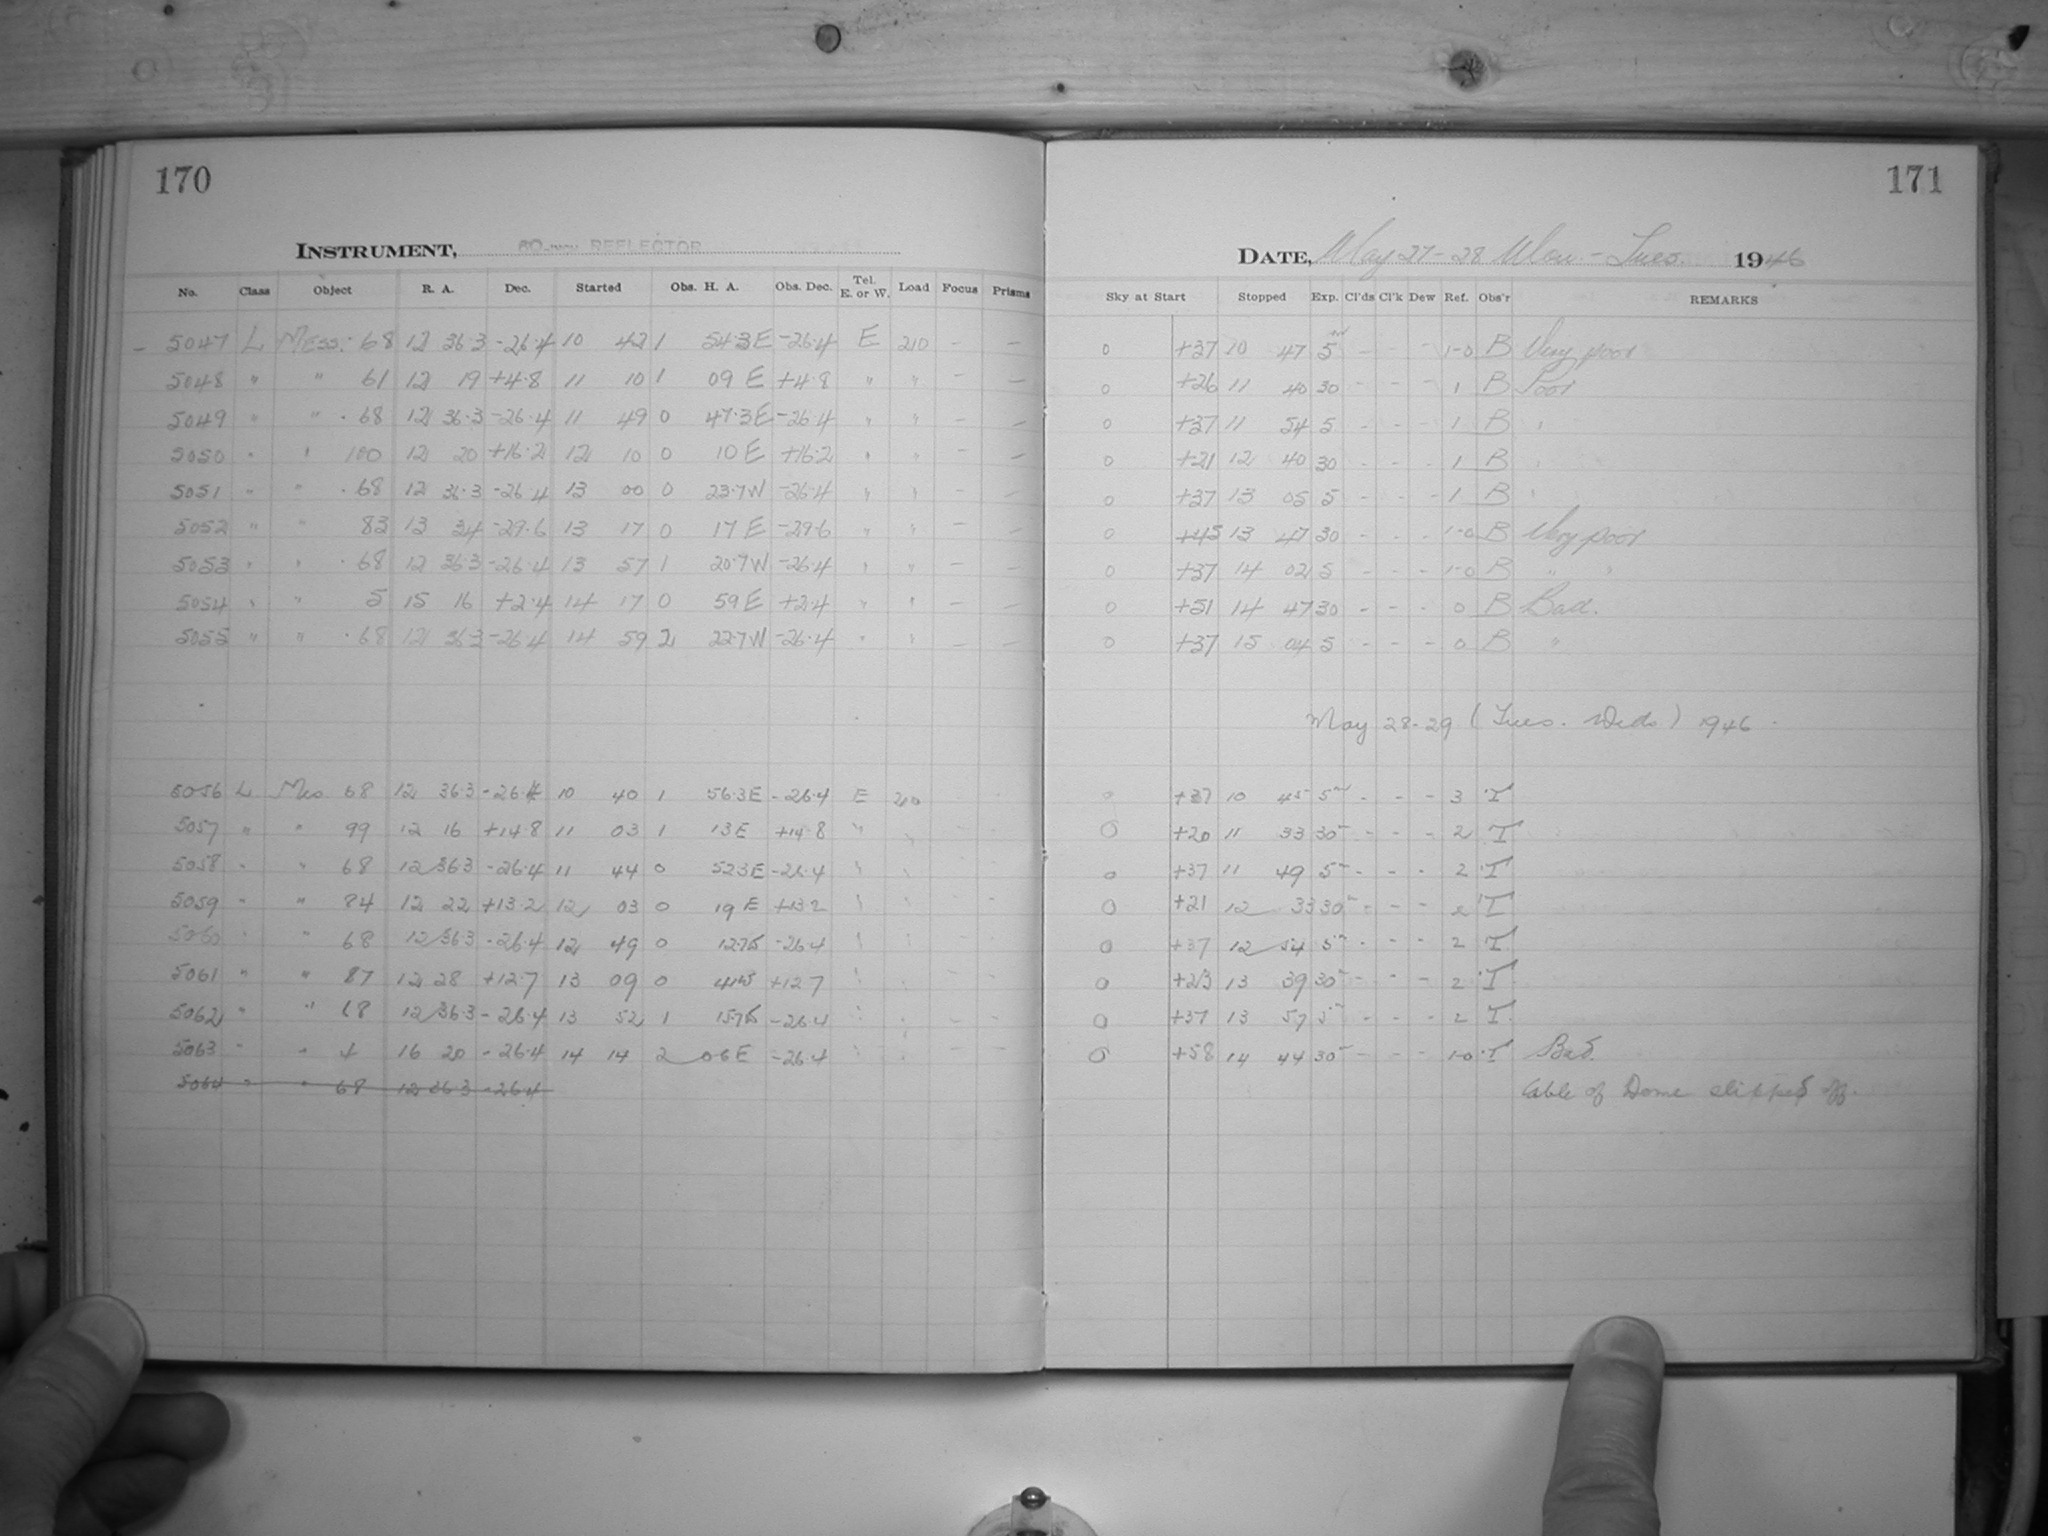 170
INSTRUMENT, 60-INCH REFLECTOR
No. Class Object R. A. Dec. Started Obs. H. A. Obs. Dec. Tel. E. or W. Load Focus Prisms
- 5047 L Mess. 68 12 36.3 -26.4 10 42 1 54.3 E -26.4 E 210 - -
5048 " " 61 12 19 +4.8 11 10 1 09 E +4.8 " " - -
5049 " " . 68 12 36.3 -26.4 11 49 0 47.3 E -26.4 " " - -
5050 " " 100 12 20 +16.2 12 10 0 10 E +16.2 " " - -
5051 " " . 68 12 36.3 -26.4 13 00 0 23.7 W -26.4 " " - -
5052 " " 83 13 34 -29.6 13 17 0 17 E -29.6 " " - -
5053 " " . 68 12 36.3 -26.4 13 57 1 20.7 W -26.4 " " - -
5054 " " 5 15 16 +2.4 14 17 0 59 E +2.4 " " - -
5055 " " . 68 12 36.3 -26.4 14 59 2 22.7 W -26.4 " " - -
5056 L Mes 68 12 36.3 -26.4 10 40 1 56.3 E -26.4 E 210 - -
5057 " " 99 12 16 +14.8 11 03 1 13 E +14.8 " " - -
5058 " " 68 12 36.3 -26.4 11 44 0 52.3 E -26.4 " "
5059 " " 84 12 22 +13.2 12 03 0 19 E +13.2 " " - -
5060 " " 68 12 36.3 -26.4 12 49 0 12.7 W -26.4 " "
5061 " " 87 12 28 +12.7 13 09 0 41 W +12.7 " " - -
5062 " " 68 12 36.3 -26.4 13 52 1 15.7 W -26.4 " " - -
5063 " " 4 16 20 -26.4 14 14 2 06 E -26.4 " " - -
5064 " " 68 12 36.3 -26.4
171
DATE, May 27-28 Mon - Tues. 1946
Sky at Start Stopped Exp. Cl'ds Cl'k Dew Ref. Obs'r REMARKS
0 +37 10 47 5m - - - 1-0 B Very poor
0 +26 11 40 30 - - - 1 B Poor
0 +37 11 54 5 - - - 1 B "
0 +21 12 40 30 - - - 1 B "
0 +37 13 05 5 - - - 1 B "
0 +45 13 47 30 - - - 1-0 B Very poor
0 +37 14 02 5 - - - 1-0 B " "
0 +51 14 47 30 - - - 0 B Bad.
0 +37 15 04 5 - - - 0 B "
May 28-29 (Tues. Weds) 1946
0 +37 10 45 5m - - - 3 T
0 +20 11 33 30 - - - 2 T
0 +37 11 49 5 - - - 2 T
0 +21 12 33 30 - - - 2 T
0 +37 12 54 5m - - - 2 T
0 +23 13 39 30 - - - 2 T
0 +37 13 57 5m - - - 2 T
0 +58 14 44 30 - - - 1-0 T Bad.
Cable of Dome slipped off.